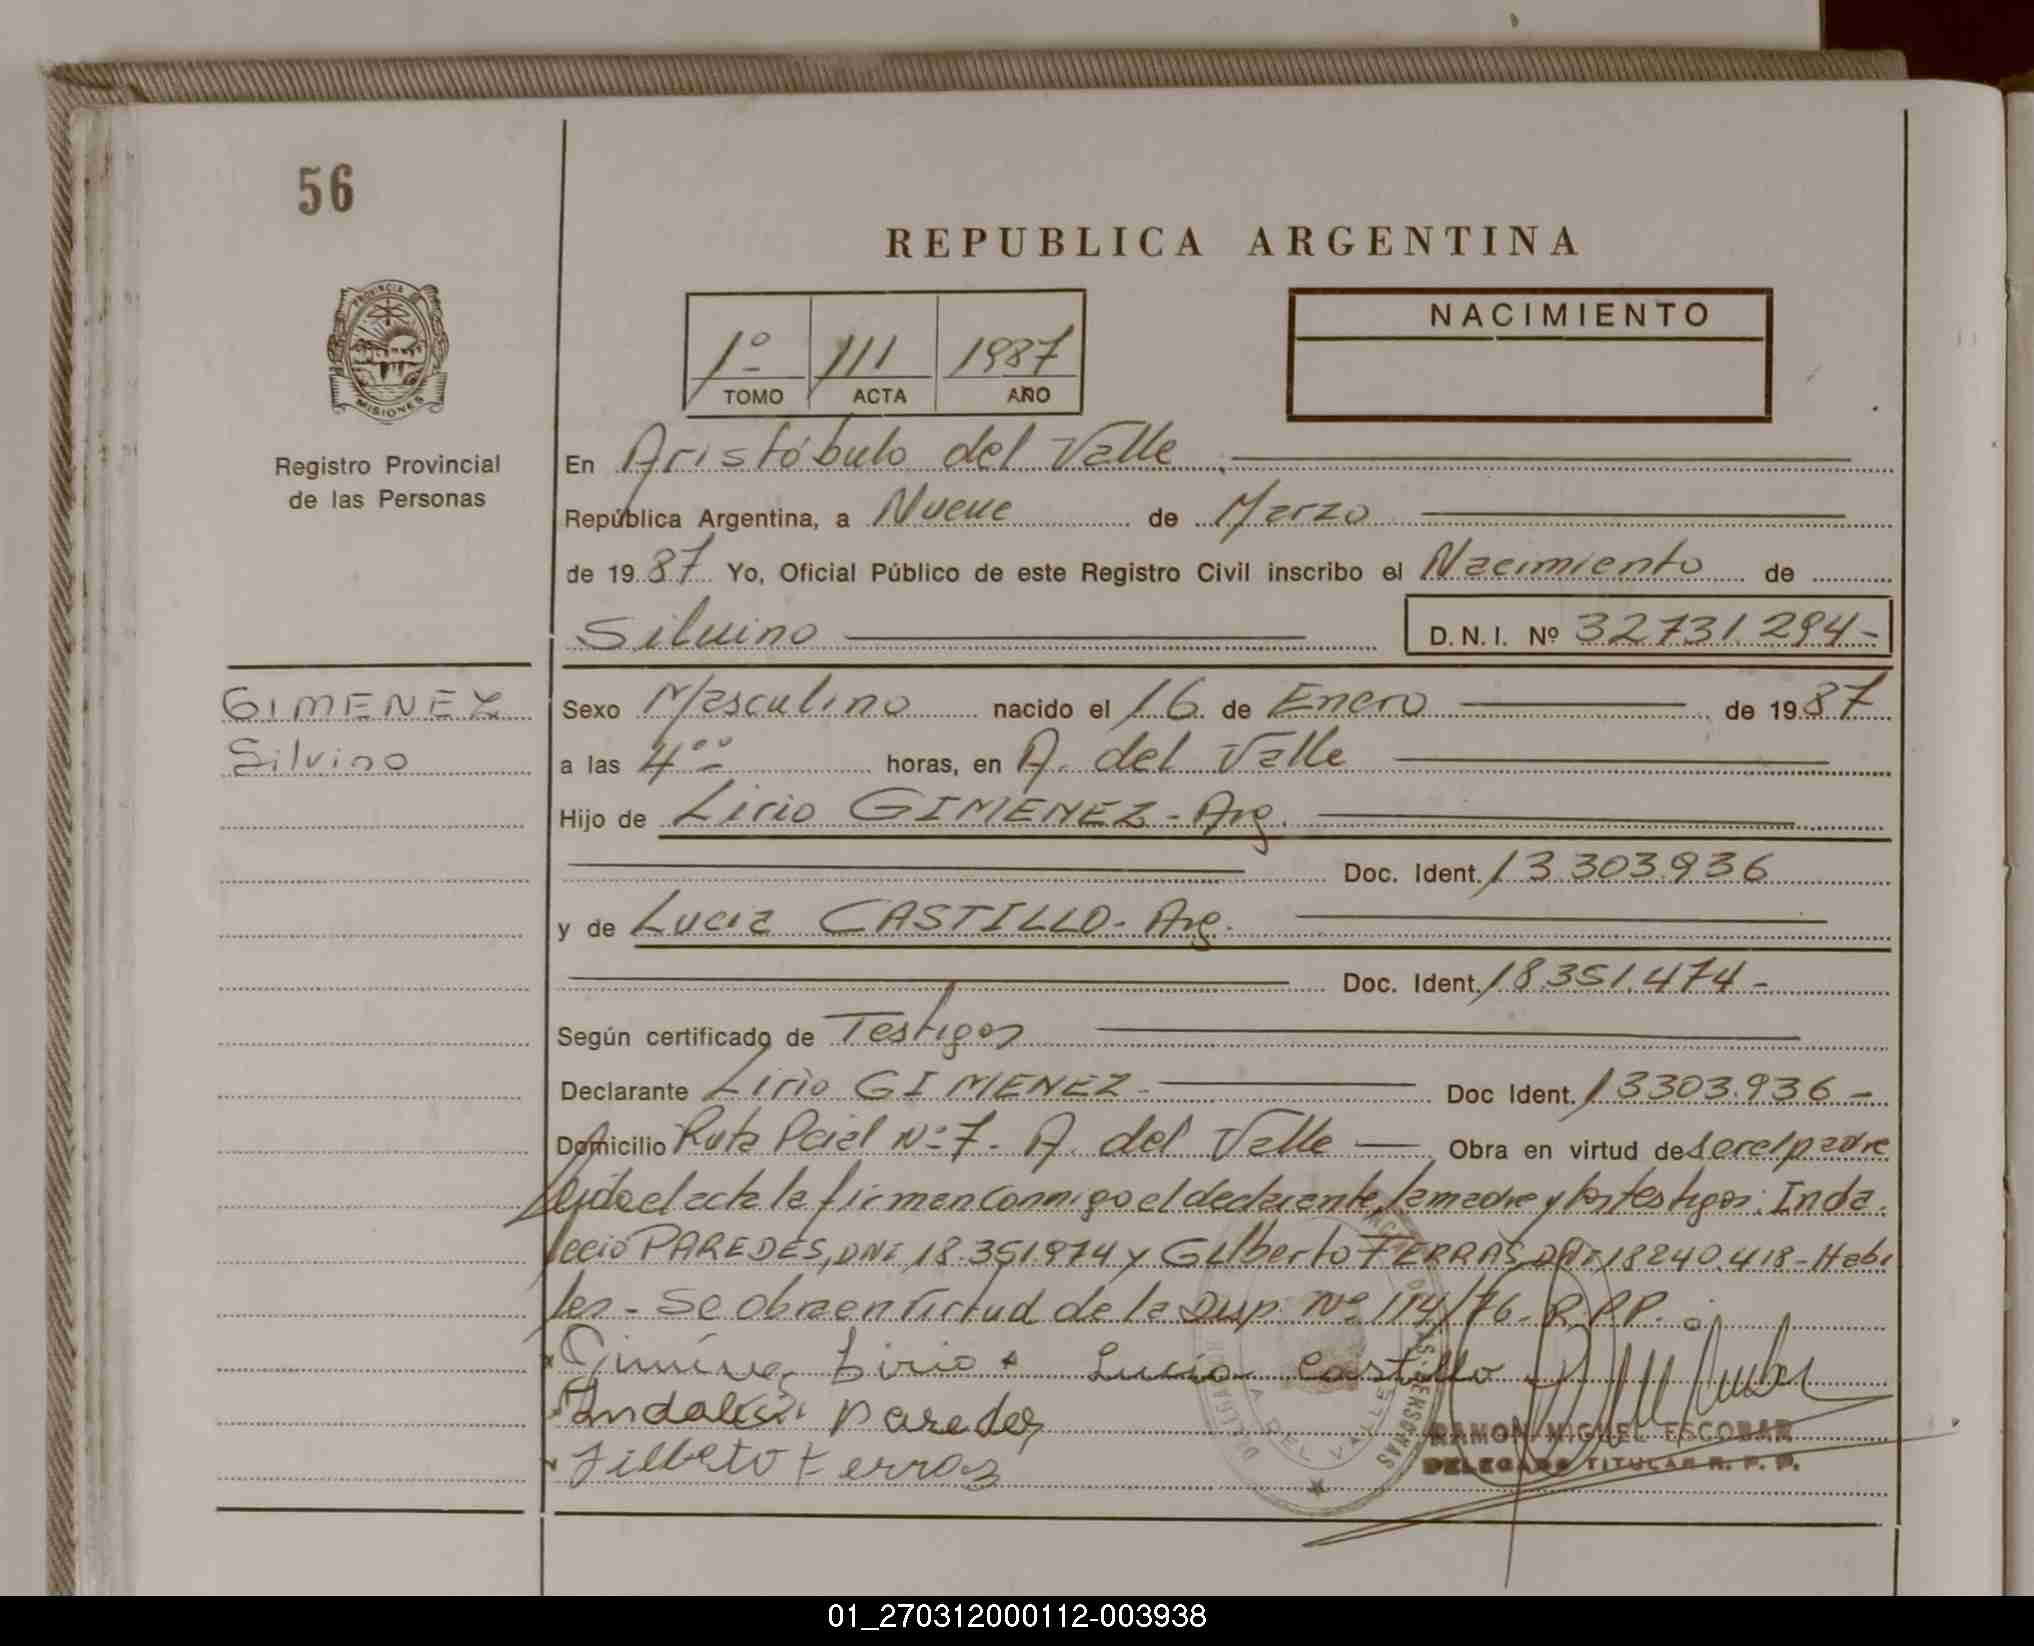 56
REPUBLICA ARGENTINA
PROVINCIA DE
MISIONES
Registro Provincial
de las Personas
1º 111 1987
TOMO ACTA AÑO
NACIMIENTO
En Aristóbulo del Valle
República Argentina, a Nueve de Marzo
de 1987 Yo, Oficial Público de este Registro Civil inscribo el Nacimiento de
Silvino D.N.I. Nº 32731.294-
GIMENEZ
Silvino
Sexo Masculino nacido el 16 de Enero de 1987
a las 4ºº horas, en A. del Valle
Hijo de Lirio GIMENEZ - Arg.
Doc. Ident. 13.303.936
y de Lucia CASTILLO - Arg.
Doc. Ident. 18.351.474-
Según certificado de Testigos
Declarante Lirio GIMENEZ - Doc Ident. 13303.936-
Domicilio Ruta Pcial Nº 7 - A. del Valle Obra en virtud de ser el padre
Leida el acta la firman conmigo el declarante, la madre y los testigos: Inda.
lecio PAREDES, DNI 18.351.974 y Gilberto FERRAS, DNI 18240.418 - Habi
les - Se obra en virtud de la Disp. Nº 114/76 - R.P.P.
Giménez Lirio Lucia Castillo
Indalecio Paredes
Gilberto Ferras
A. DEL VALLE
RAMON MIGUEL ESCOBAR
DELEGADO TITULAR R. P. P.
01_270312000112-003938